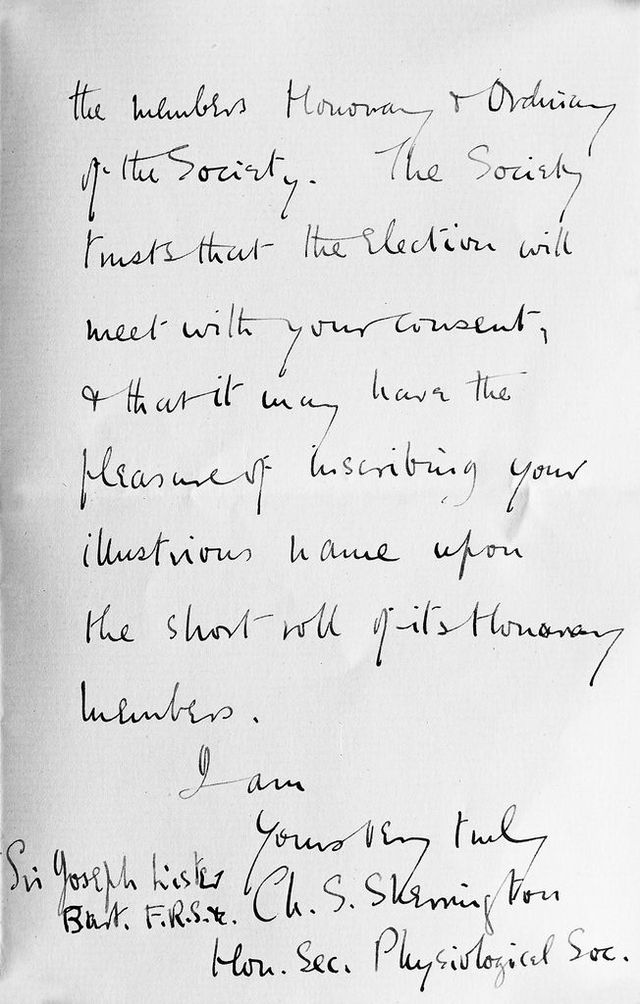 the members Honorary & Ordinary
of the Society. The Society
trusts that the Election will
meet with your consent,
& that it may have the
pleasure of inscribing your
illustrious name upon
the short roll of its Honorary
members.
I am
Yours very truly
Sir Joseph Lister
Bart. F.R.S. &c.
Ch. S. Sherrington
Hon. Sec. Physiological Soc.